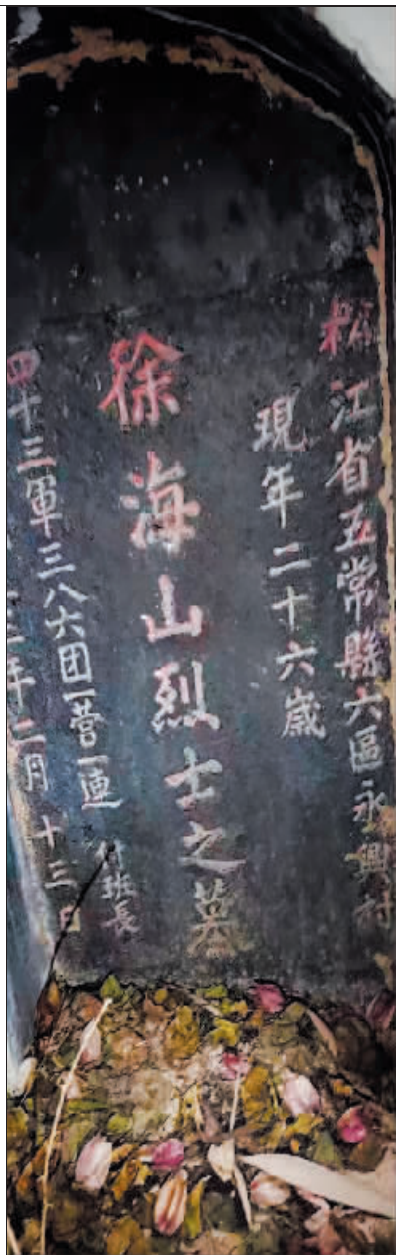 松江省五常縣六區永興村
現年二十六歲
徐海山烈士之墓
四十三軍三八六团一营一連付班長
三年二月十三日